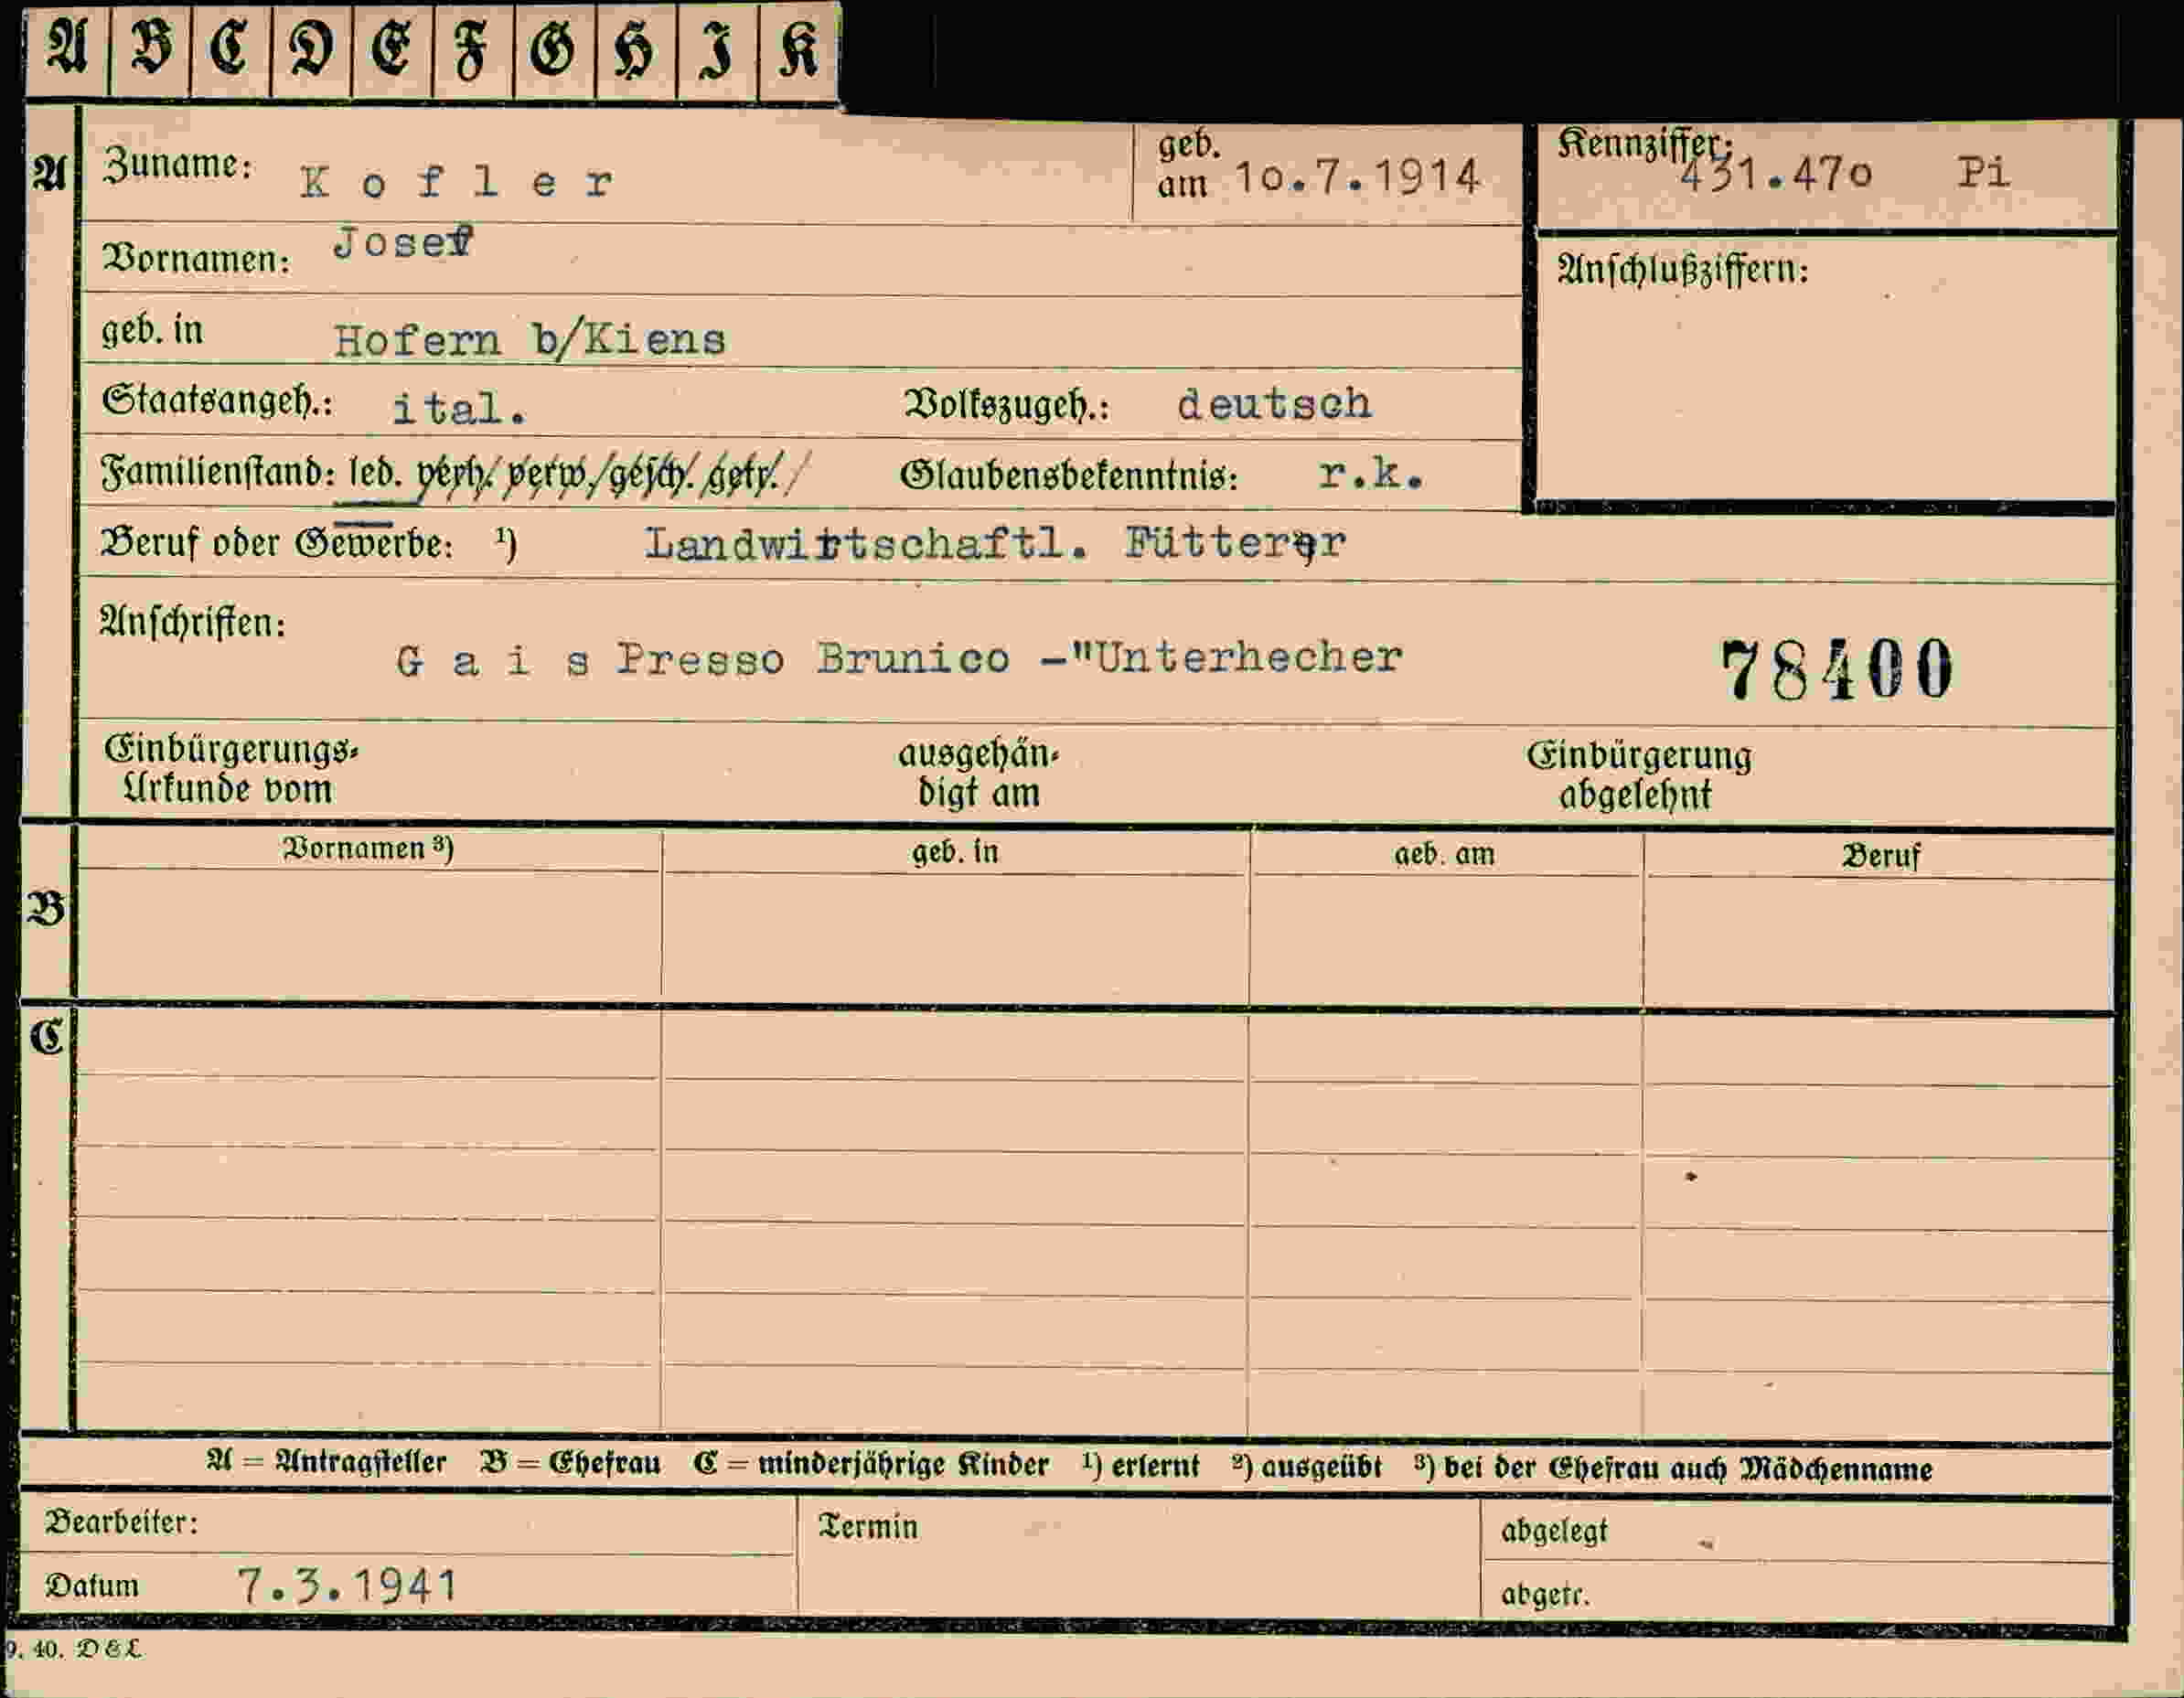 A B C D E F G H I K
A Zuname: K o f l e r geb. am 10.7.1914 Kennziffer: 431.47o Pi
Vornamen: Josef Anschlußziffern:
geb. in Hofern b/Kiens
Staatsangeh.: ital. Volkszugeh.: deutsch
Familienstand: led. verh. verw. gesch. getr. Glaubensbekenntnis: r.k.
Beruf oder Gewerbe: ¹) Landwirtschaftl. Fütterer
Anschriften:
G a i s Presso Brunico -"Unterhecher 78400
Einbürgerungs- ausgehän- Einbürgerung
Urkunde vom digt am abgelehnt
Vornamen ³) geb. in geb. am Beruf
B
C
A = Antragsteller B = Ehefrau C = minderjährige Kinder ¹) erlernt ²) ausgeübt ³) bei der Ehefrau auch Mädchenname
Bearbeiter: Termin abgelegt
Datum 7.3.1941 abgetr.
9. 40. D&L